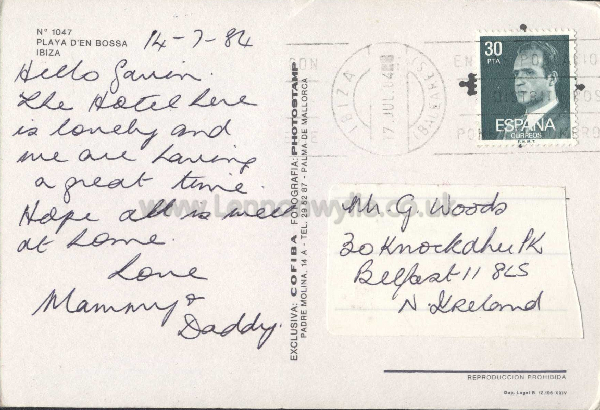 Nº 1047
PLAYA D'EN BOSSA
IBIZA
14-7-84
Hello Gavin.
The Hotel here
is lovely and
we are having
a great time.
Hope all is well
at home.
Love
Mammy &
Daddy.
www.Lennonwylie.co.uk
EXCLUSIVA: COFIBA FOTOGRAFIA: PHOTOSTAMP
PADRE MOLINA, 14 A - TEL. 29 62 87 - PALMA DE MALLORCA
IBIZA
17 JUL 84
(BALEARES)
30
PTA
ESPAÑA
CORREOS
F.N.M.T.
Mr G Woods
30 Knockdhu Pk
Belfast 11 8LS
N. Ireland
REPRODUCCION PROHIBIDA